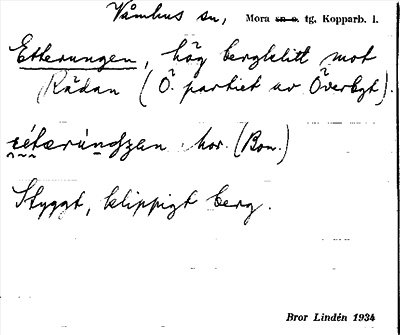 Våmhus sn, Mora sn o. tg, Kopparb. l.
Etterungen, hög bergklitt mot
Rädan (Ö. partiet av Överbgt).
hor. (Bon.)
Styggt, klippigt berg.
Bror Lindén 1934